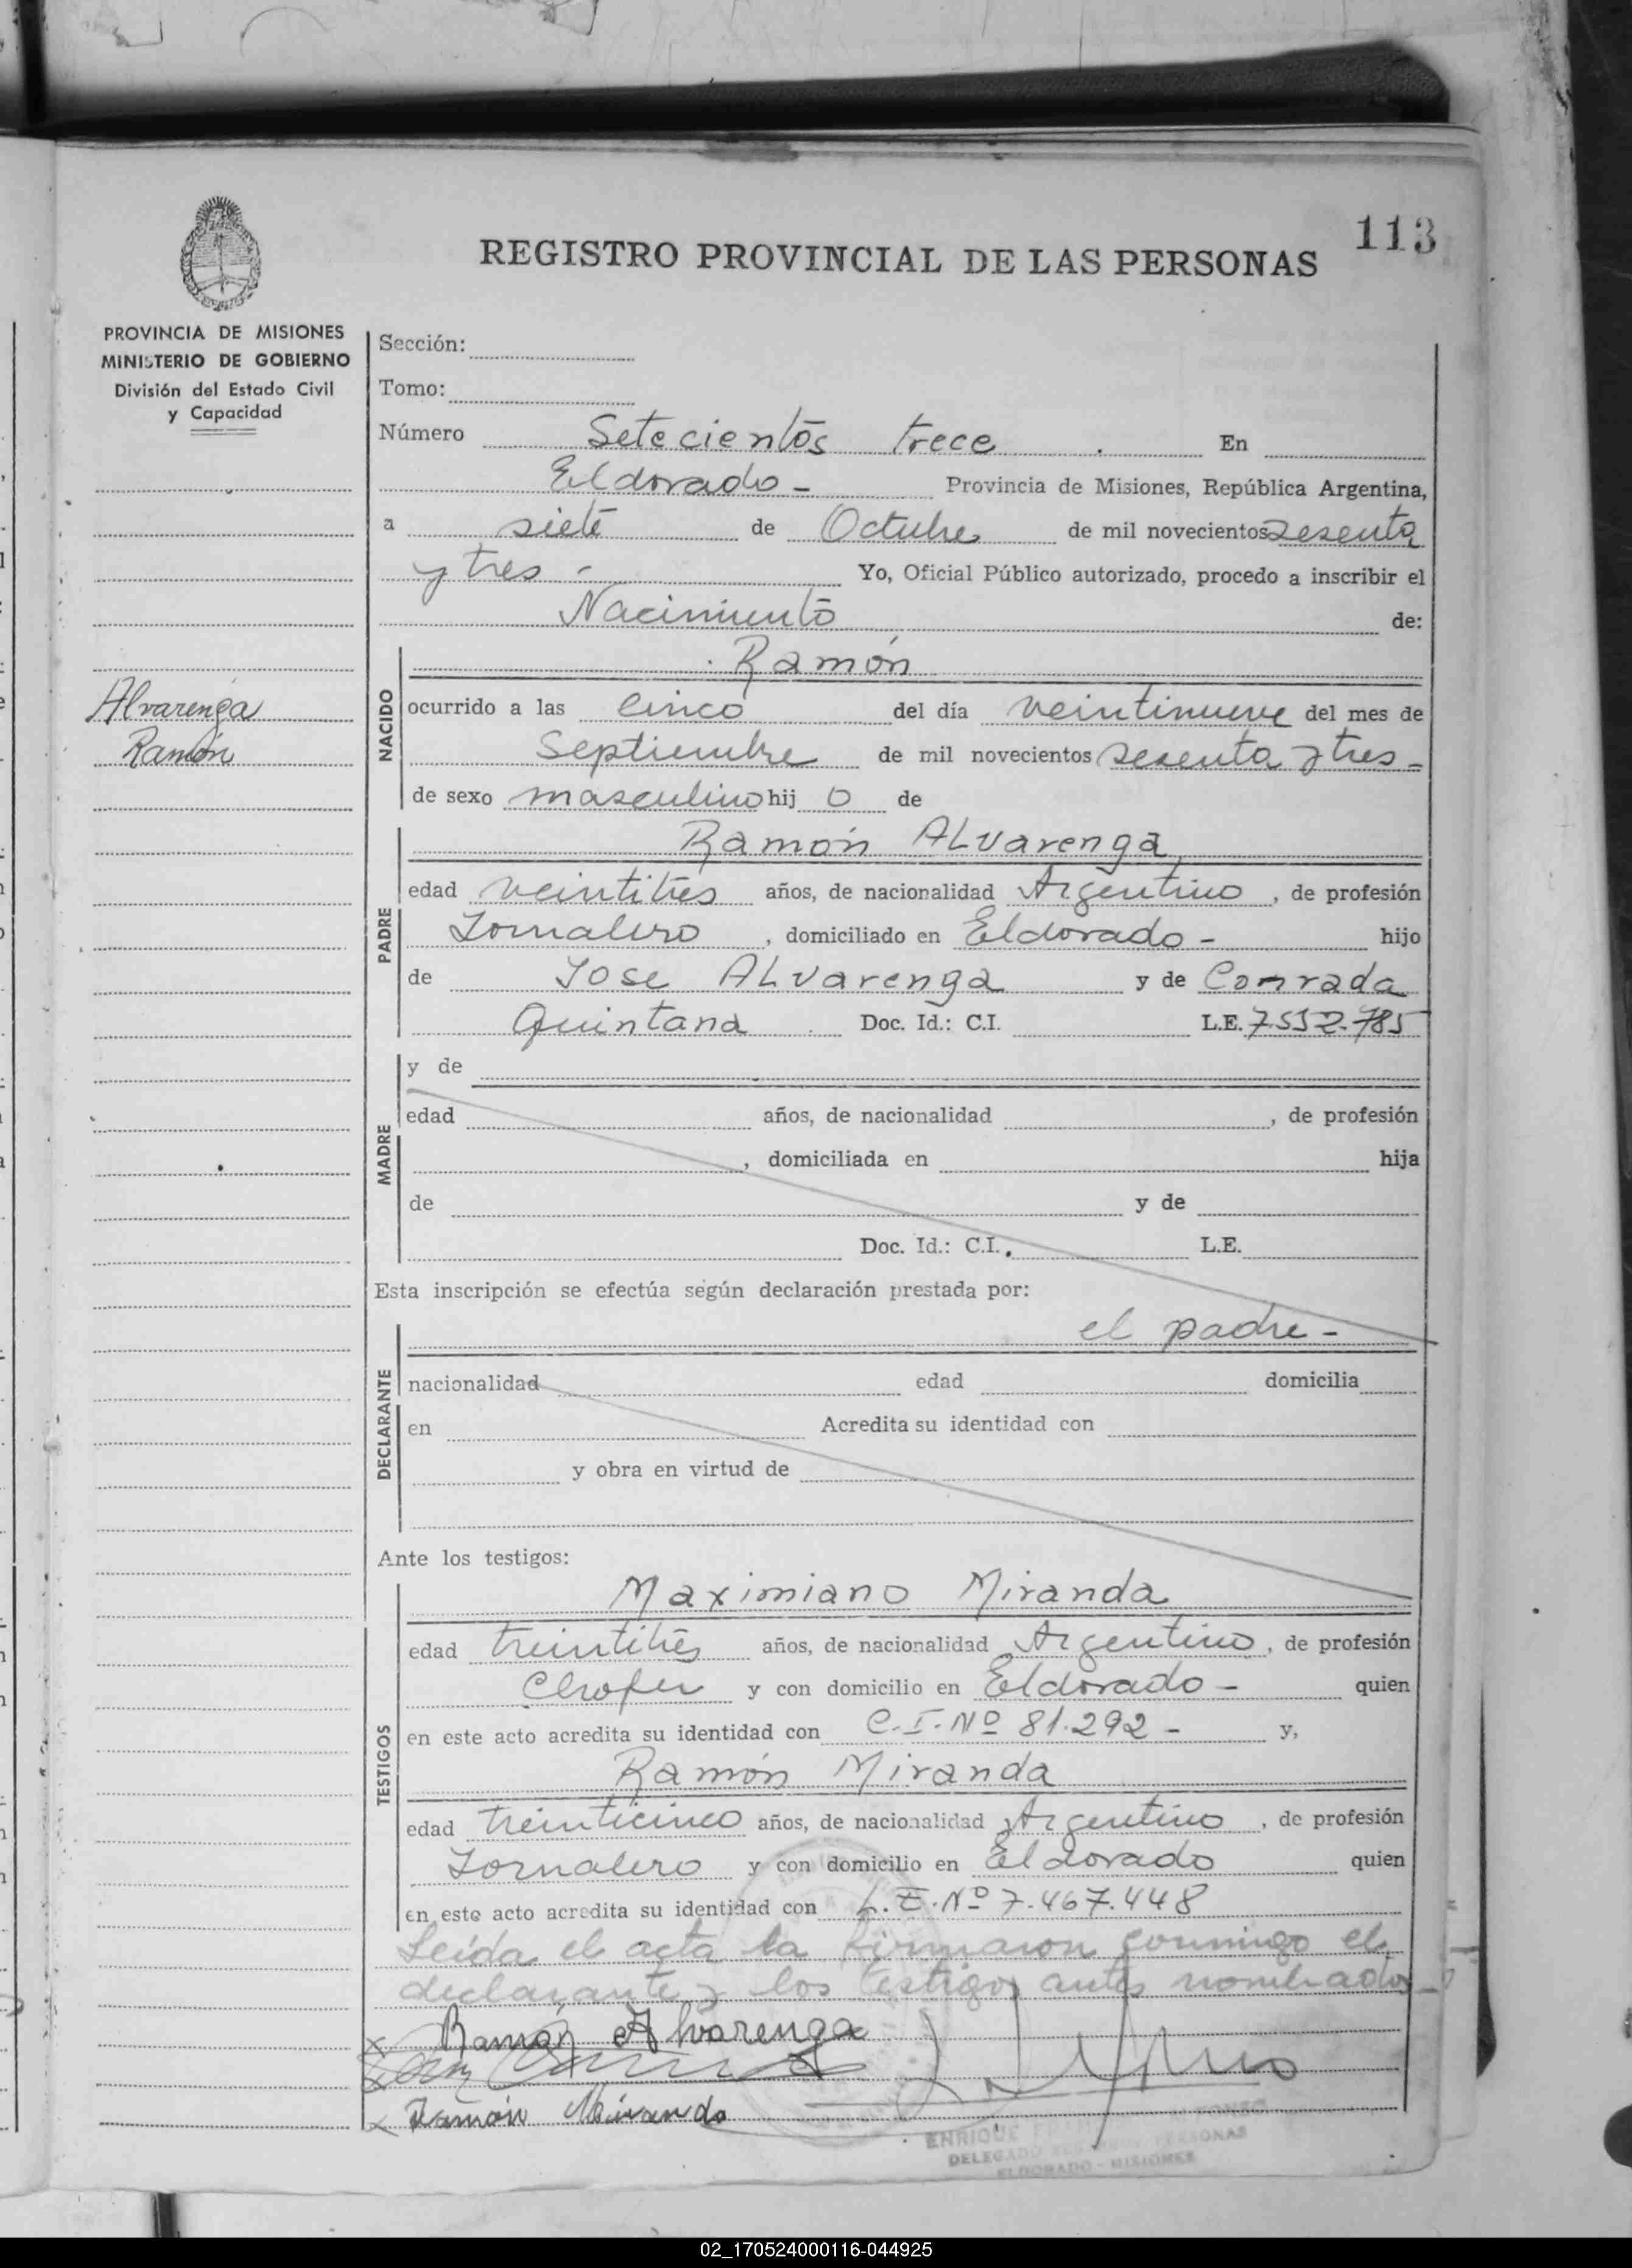 113
REGISTRO PROVINCIAL DE LAS PERSONAS
PROVINCIA DE MISIONES
MINISTERIO DE GOBIERNO
División del Estado Civil
y Capacidad
Sección:
Tomo:
Número Setecientos trece . En
Eldorado - Provincia de Misiones, República Argentina,
a siete de Octubre de mil novecientos sesenta
y tres - Yo, Oficial Público autorizado, procedo a inscribir el
Nacimiento de:
Alvarenga
Ramón
NACIDO
Ramón
ocurrido a las cinco del día veintinueve del mes de
Septiembre de mil novecientos sesenta y tres -
de sexo masculino hij o de
PADRE
Ramón ALvarenga
edad veintitres años, de nacionalidad Argentino , de profesión
Jornalero , domiciliado en Eldorado - hijo
de Jose ALvarenga y de Conrada
Quintana . Doc. Id.: C.I. L.E. 7.552.785
MADRE
y de
edad años, de nacionalidad , de profesión
, domiciliada en hija
de y de
Doc. Id.: C.I. L.E.
Esta inscripción se efectúa según declaración prestada por:
DECLARANTE
el padre -
nacionalidad edad domicilia
en Acredita su identidad con
y obra en virtud de
Ante los testigos:
TESTIGOS
Maximiano Miranda
edad treintitrés años, de nacionalidad Argentino , de profesión
Chofer y con domicilio en Eldorado - quien
en este acto acredita su identidad con C.I. Nº 81.292 - y,
Ramón Miranda
edad treinticinco años, de nacionalidad Argentino , de profesión
Jornalero y con domicilio en Eldorado quien
en este acto acredita su identidad con L.E. Nº 7.467.448
Leída el acta la firmaron conmigo el
declarante y los testigos antes nombrados
x Ramón Alvarenga
x Ramón Miranda
ENRIQUE
DELEGADO PERSONAS
ELDORADO - MISIONES
02_170524000116-044925